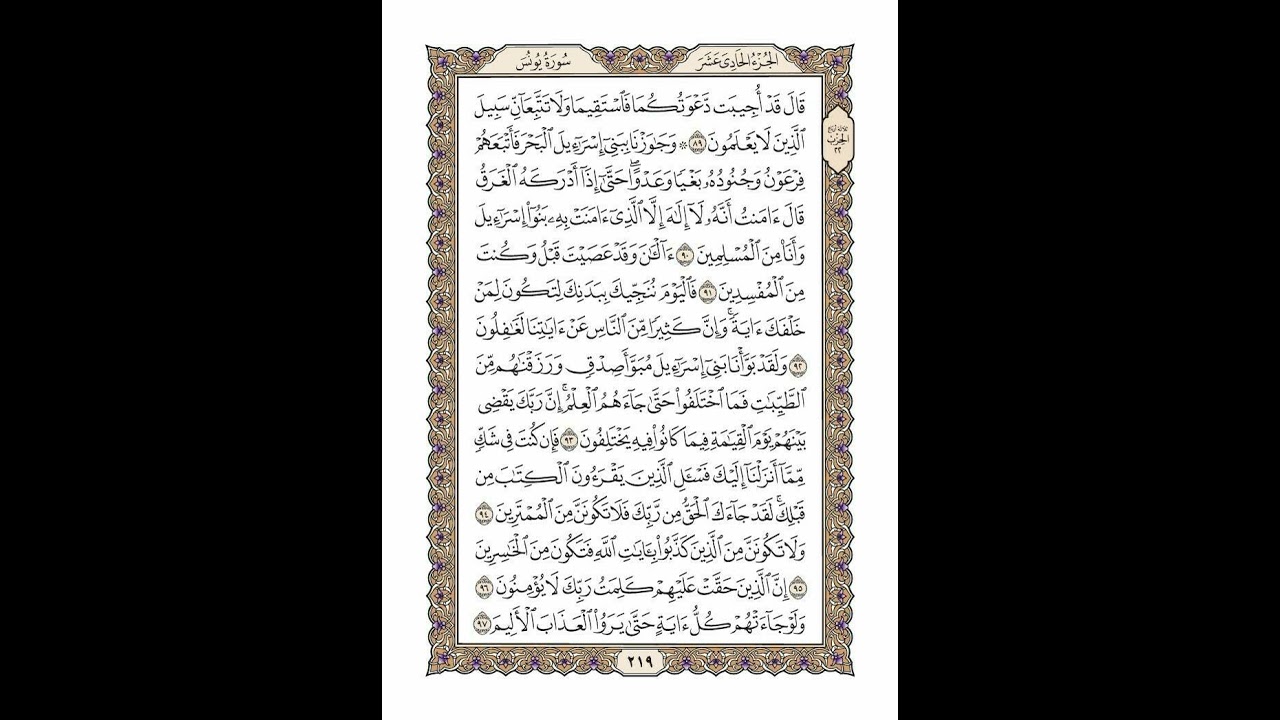 الجُزْءُ الحَادِىَ عَشَرَ
سُورَةُ يُونُسَ
قَالَ قَدْ أُجِيبَت دَّعْوَتُكُمَا فَٱسْتَقِيمَا وَلَا تَتَّبِعَآنِّ سَبِيلَ
ٱلَّذِينَ لَا يَعْلَمُونَ ٨٩ ۞ وَجَٰوَزْنَا بِبَنِىٓ إِسْرَٰٓءِيلَ ٱلْبَحْرَ فَأَتْبَعَهُمْ
فِرْعَوْنُ وَجُنُودُهُۥ بَغْيًا وَعَدْوًا ۖ حَتَّىٰٓ إِذَآ أَدْرَكَهُ ٱلْغَرَقُ
قَالَ ءَامَنتُ أَنَّهُۥ لَآ إِلَٰهَ إِلَّا ٱلَّذِىٓ ءَامَنَتْ بِهِۦ بَنُوٓا۟ إِسْرَٰٓءِيلَ
وَأَنَا۠ مِنَ ٱلْمُسْلِمِينَ ٩٠ ءَآلْـَٰٔنَ وَقَدْ عَصَيْتَ قَبْلُ وَكُنتَ
مِنَ ٱلْمُفْسِدِينَ ٩١ فَٱلْيَوْمَ نُنَجِّيكَ بِبَدَنِكَ لِتَكُونَ لِمَنْ
خَلْفَكَ ءَايَةً ۚ وَإِنَّ كَثِيرًا مِّنَ ٱلنَّاسِ عَنْ ءَايَٰتِنَا لَغَٰفِلُونَ
٩٢ وَلَقَدْ بَوَّأْنَا بَنِىٓ إِسْرَٰٓءِيلَ مُبَوَّأَ صِدْقٍ وَرَزَقْنَٰهُم مِّنَ
ٱلطَّيِّبَٰتِ فَمَا ٱخْتَلَفُوا۟ حَتَّىٰ جَآءَهُمُ ٱلْعِلْمُ ۚ إِنَّ رَبَّكَ يَقْضِى
بَيْنَهُمْ يَوْمَ ٱلْقِيَٰمَةِ فِيمَا كَانُوا۟ فِيهِ يَخْتَلِفُونَ ٩٣ فَإِن كُنتَ فِى شَكٍّ
مِّمَّآ أَنزَلْنَآ إِلَيْكَ فَسْـَٔلِ ٱلَّذِينَ يَقْرَءُونَ ٱلْكِتَٰبَ مِن
قَبْلِكَ ۚ لَقَدْ جَآءَكَ ٱلْحَقُّ مِن رَّبِّكَ فَلَا تَكُونَنَّ مِنَ ٱلْمُمْتَرِينَ ٩٤
وَلَا تَكُونَنَّ مِنَ ٱلَّذِينَ كَذَّبُوا۟ بِـَٔايَٰتِ ٱللَّهِ فَتَكُونَ مِنَ ٱلْخَٰسِرِينَ
٩٥ إِنَّ ٱلَّذِينَ حَقَّتْ عَلَيْهِمْ كَلِمَتُ رَبِّكَ لَا يُؤْمِنُونَ ٩٦
وَلَوْ جَآءَتْهُمْ كُلُّ ءَايَةٍ حَتَّىٰ يَرَوُا۟ ٱلْعَذَابَ ٱلْأَلِيمَ ٩٧
الحِزْب
٢٢
٢١٩